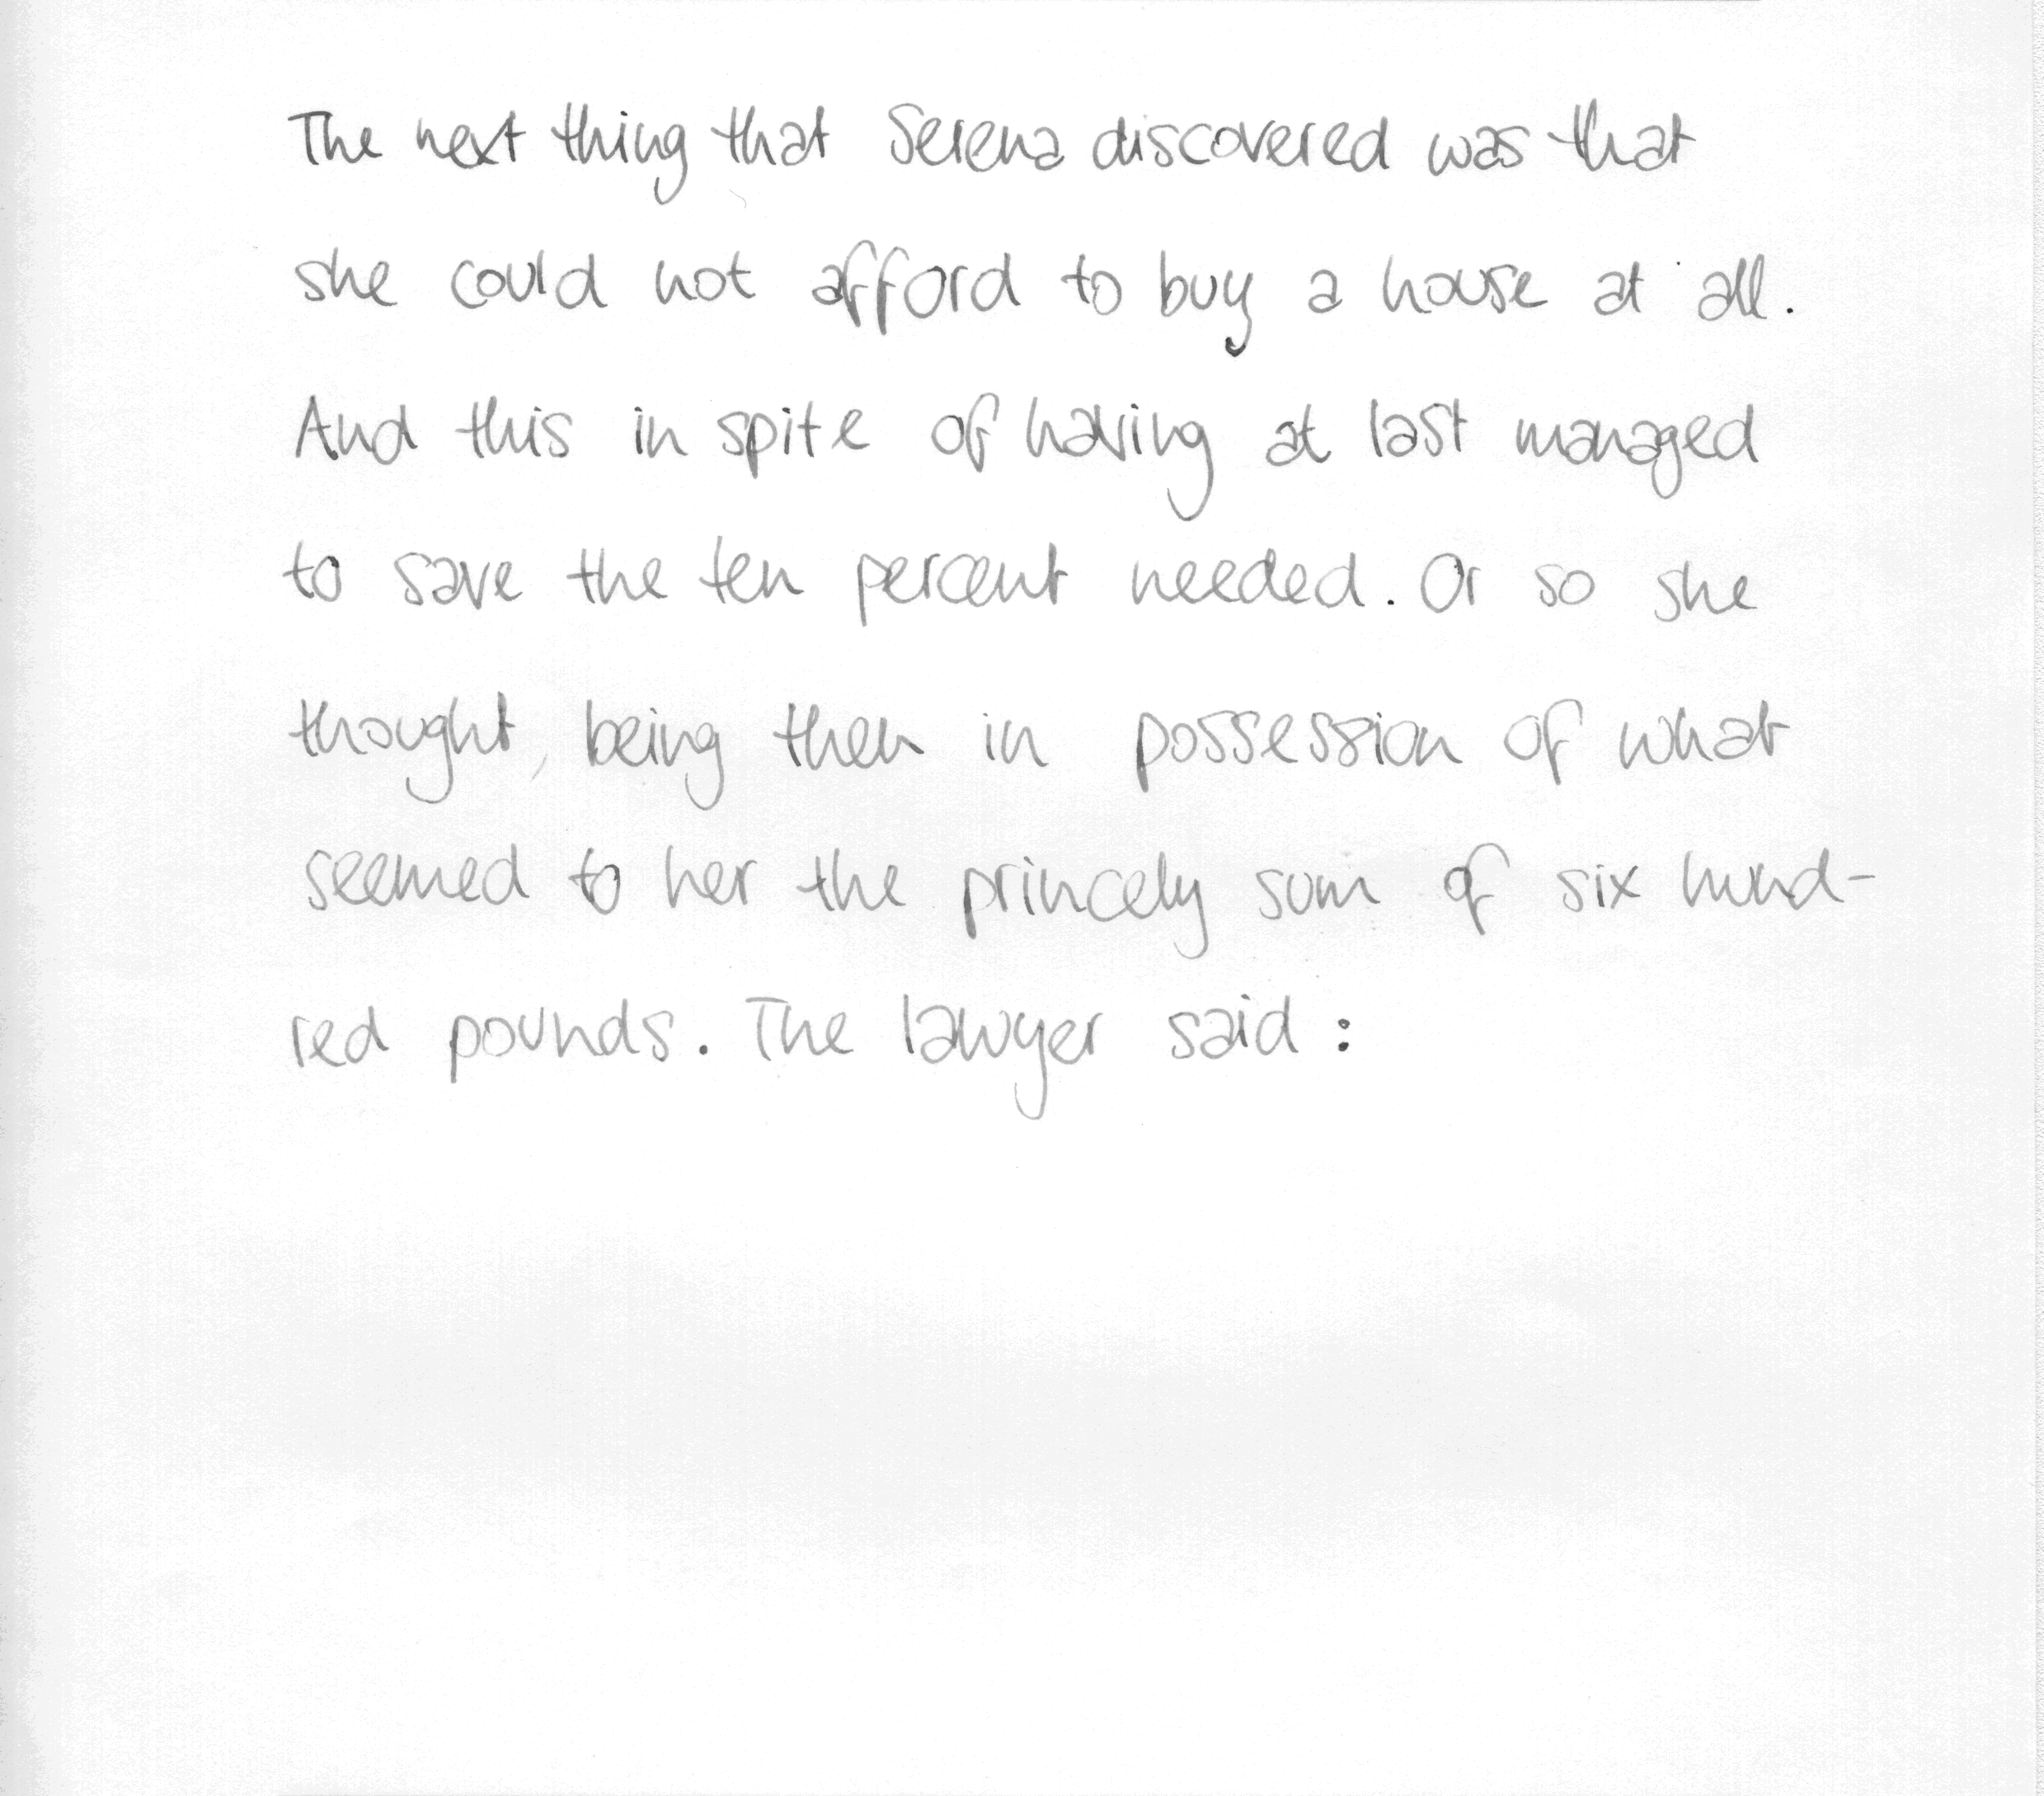 The next thing that Serena discovered was that
she could not afford to buy a house at all.
And this in spite of having at last managed
to save the ten percent needed. Or so she
thought, being then in possession of what
seemed to her the princely sum of six hund-
red pounds. The lawyer said: